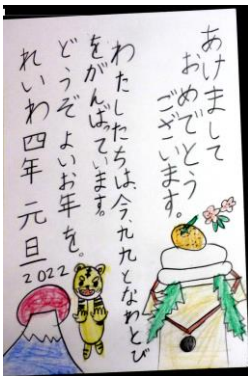 あけまして
おめでとう
ございます。
わたしたちは、今、九九となわとび
をがんばっています。
どうぞよいお年を。
れいわ四年 元旦
2022